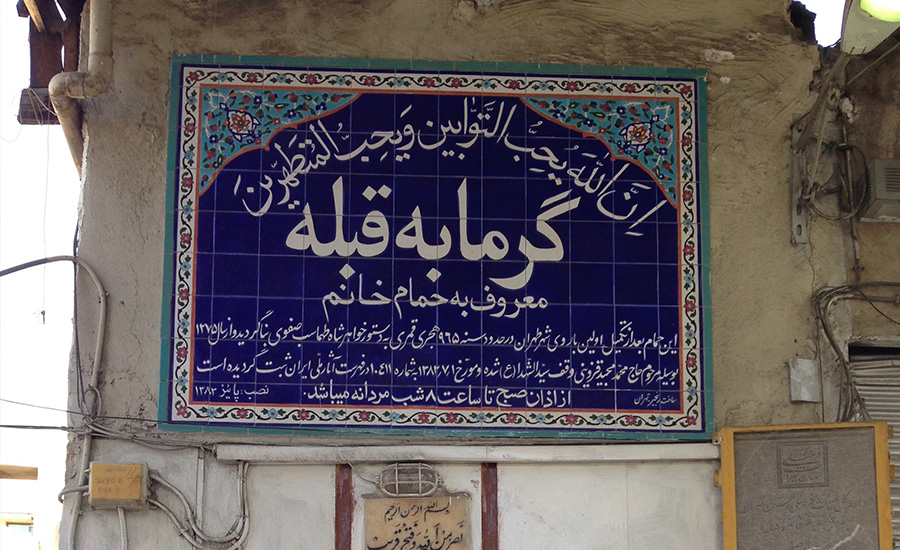 اِنَّ اللّٰهَ یُحِبُّ التَّوّابینَ وَ یُحِبُّ المُتَطَهِّرینَ
گرمابه قبله
معروف به حمام خانم
این حمام بعد از تکمیل اولین باروی شهر طهران در حدود سنه ۹۶۵ هجری قمری به دستور خواهر شاه طهماسب صفوی بنا گردید و از سال ۱۲۷۵
بوسیله مرحوم حاج محمد مجید قزوینی وقف سیدالشهدا (ع) شده و مورخ ۱۳۸۳/۷/۱ به شماره ۱۰۴۱۱ در فهرست آثار ملی ایران ثبت گردیده است
از اذان صبح تا ساعت ۸ شب مردانه میباشد.
نصب پاییز ۱۳۸۳
بسم الله الرحمن الرحیم
نصر من الله و فتح قریب